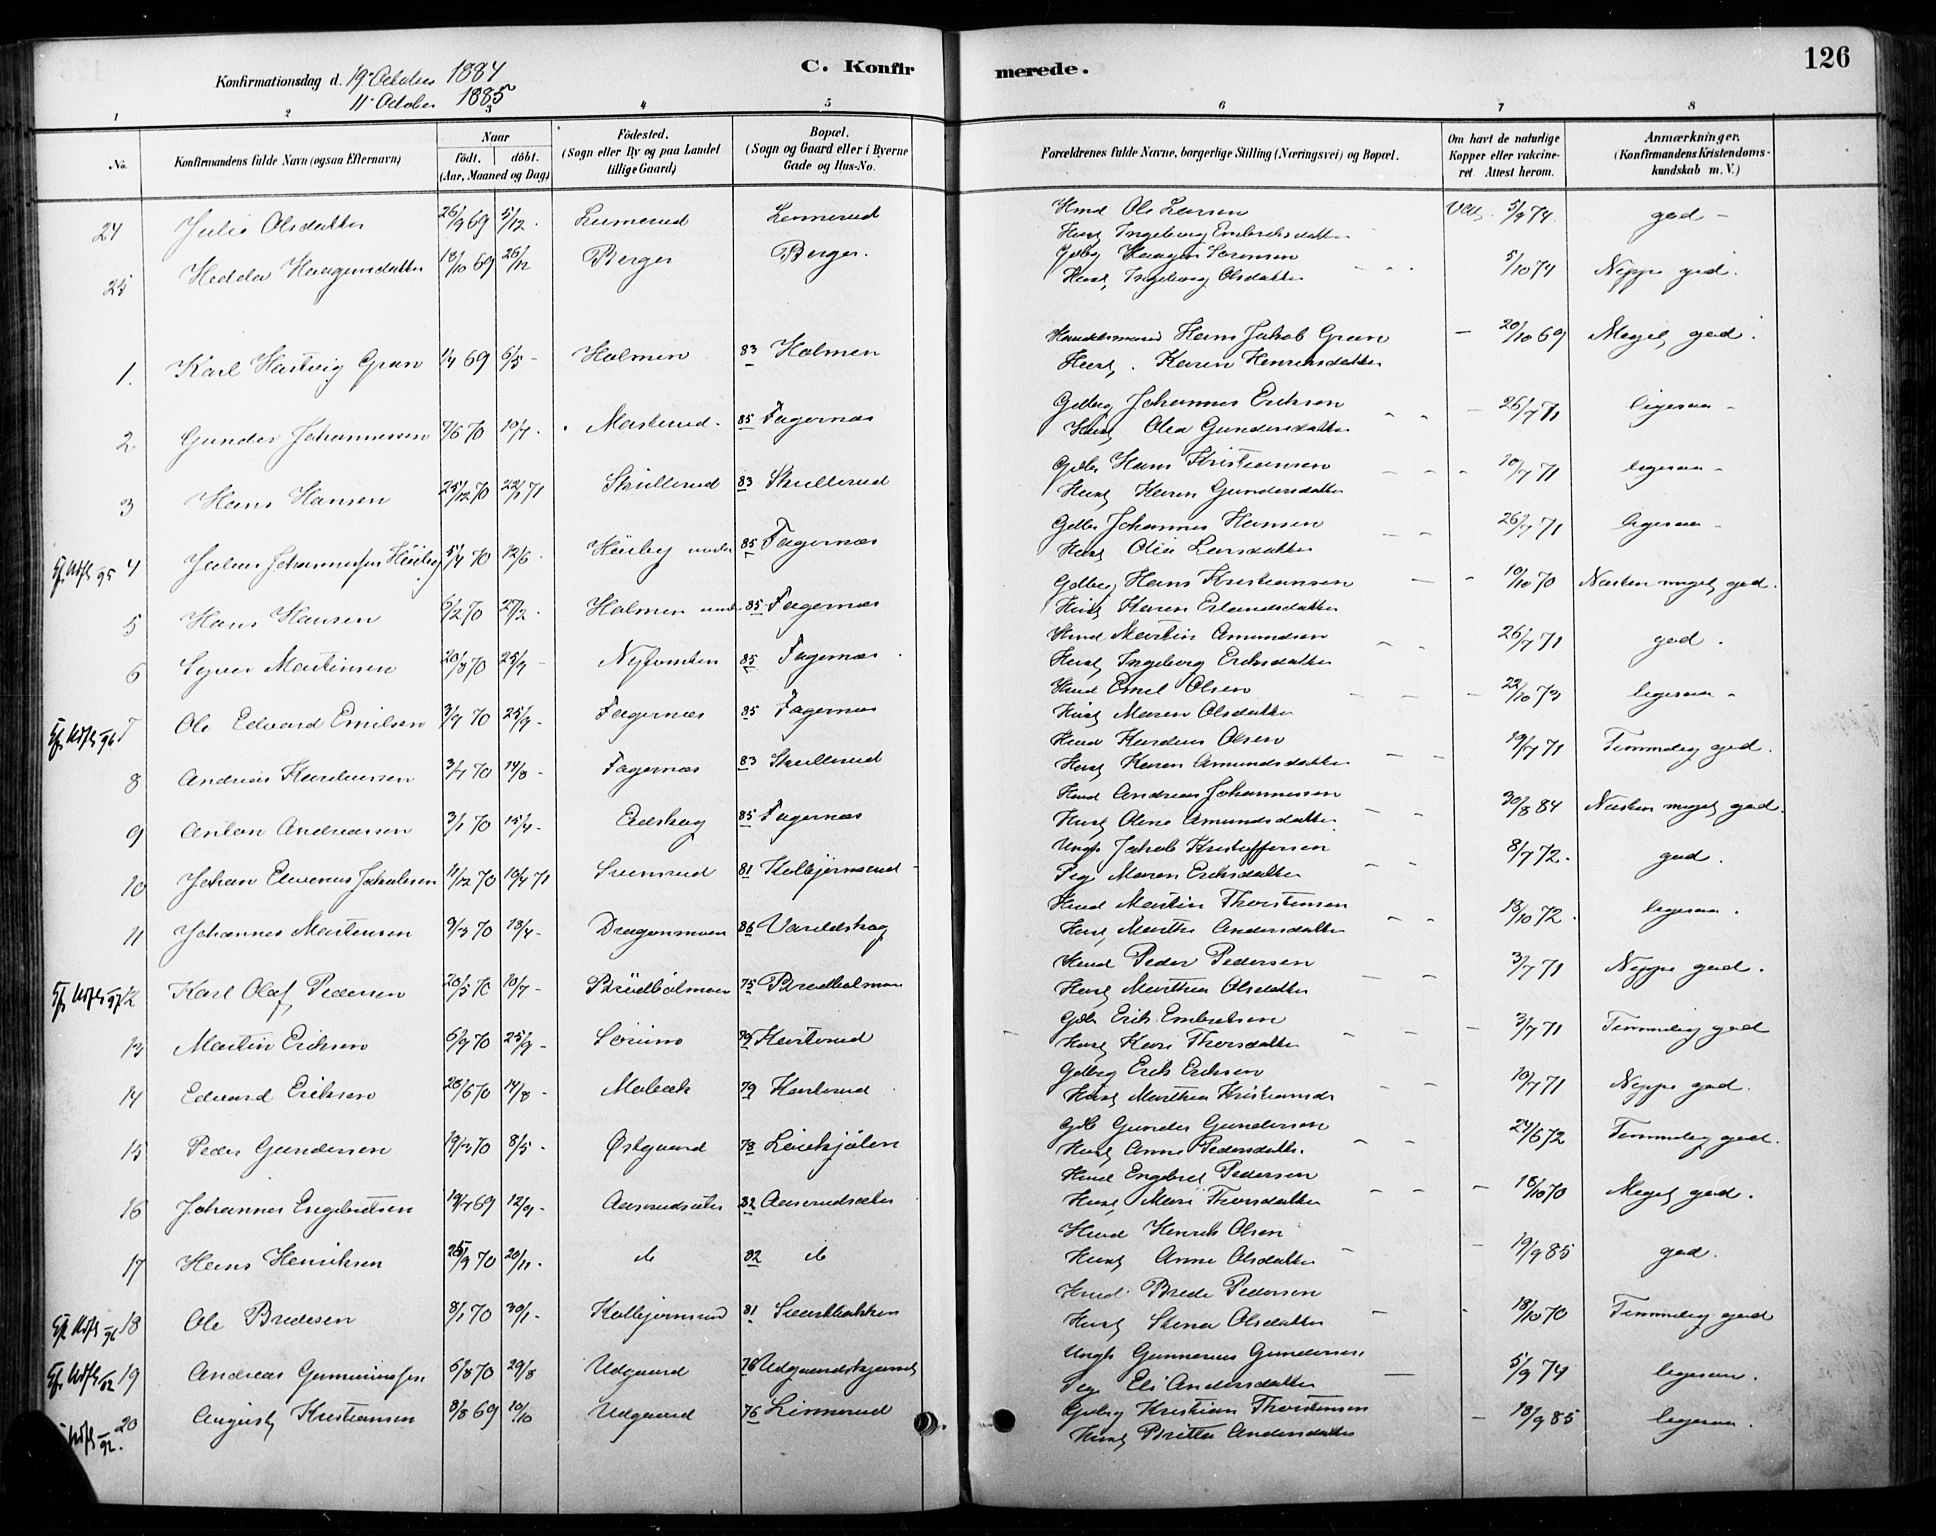 126
Konfirmationsdag d. 19 October 1884
11 October 1885
C. Konfirmerede.
1 2 3 4 5 6 7 8
No.
Konfirmandens fulde Navn (ogsaa Efternavn)
Naar
født. døbt.
(Aar, Maaned og Dag)
Fødested.
(Sogn eller By og paa Landet
tillige Gaard)
Bopæl.
(Sogn og Gaard eller i Byerne
Gade og Hus-No.
Forældrenes fulde Navne, borgerlige Stilling (Næringsvei) og Bopæl.
Om havt de naturlige
Kopper eller vakcine-
ret Attest herom.
Anmærkninger.
(Konfirmandens Kristendoms-
kundskab m. V.)
24 Julie Olsdatter 26/9 69 5/12. Linnerud Linnerud Hmd Ole Larsen 5/9 74. god -
Hust Ingeborg Embretsdatter
25 Hedda Haagensdatter 18/10 69 26/12 Berger Berger. Gdbg Haagen Sørensen 5/10 74 Neppe god.
Hust Ingeborg Olsdatter
1. Karl Hartvig Gran 1/4 69 6/5 - Holmen 83 Holmen Handelsmand Hans Jakob Gran - 20/10 69 Meget god.
Hust. Karen Henriksdatter
2 Gunder Johannessen 7/6 70 10/7. Masterud. 85 Fagernæs Gdbrg Johannes Eriksen - 26/7 71 ligesaa -
Hust Olea Gundersdatter
3 Hans Hansen 25/12 70 22/1 71 Skullerud 83 Skullerud Gdbr Hans Kristiansen 10/7 71 ligesaa -
Hust Karen Gundersdatter
4 Julius Johannesen Høiby 5/4 70 12/6. Høiby under 85 Fagernæs Gdbr Johannes Hansen 26/7 71 ligesaa -
Hust Olia Larsdatter
5 Hans Hansen 6/2 70 27/2. Holmen und. 85 Fagernæs Gdbrg Hans Kristiansen 10/10 70 Næsten meget god.
Hust Karen Erlandsdatter
6 Syver Martinsen 20/8 70 25/9 - Nytomten 85 Fagernæs. Hmd Martin Amundsen 26/7 71 god.
Hust Ingeborg Eriksdatter
7 Ole Edvard Emilsen 3/7 70 25/9 - Fagernæs 85 Fagernæs Hmd Emil Olsen - 22/10 73 ligesaa -
Hust Maren Olsdatter
8 Andreas Kardiussen 3/7 70 14/8 - Fagernæs 83 Skullerud Hmd Kardius Olsen 19/7 71 Temmelig god.
Hust Karen Amundsdatter
9 Anton Andreassen 3/1 70 15/4 - Eidskog 85 Fagernæs Hmd Andreas Johannessen 30/8 84 Næsten meget god.
Hust Oline Amundsdatter
10 Johan Elvenius Jakobsen 11/12 70 10/4 71 81 Kolbjørnsrud - Ungk Jakob Kristoffersen 8/7 72. god.
Pige Maren Eriksdatter
11 Johannes Martinsen 9/3 70 18/4 - Dragonmoen 86 Varildskog Hmd Martin Thorstensen 13/10 72. ligesaa.
Hust Marthe Andersdatter
12 Karl Olaf Pedersen 20/5 70 10/7 - 75 Hmd Peder Pedersen 3/7 71 Neppe god.
Hust Marthea Olsdatter
13 Martin Eriksen 6/9 70 25/9 - 79 Karterud Gdbr Erik Embretsen 3/7 71 Temmelig god
Hust Kari Thorsdatter
14 Edvard Eriksen 20/6 70 14/8 - Malbæk 79 Karterud Gdbrg Erik Eriksen 10/7 71 Neppe god.
Hust Marthea Kristiansdr
15 Peder Gundersen 19/3 70 8/5 - Østgaard 78 Leirkjølen Gdb Gunder Gundersen 24/6 72 Temmelig god.
Hust Anne Pedersdatter.
16 Johannes Engebretsen 19/7 69 12/9 - Aaserudsæter 82 Aaserudsæter Hmd Engebret Pedersen - 18/10 70 Meget god.
Hust Mari Thorsdatter
17 Hans Henriksen 25/9 70 20/11. do 82 do Hmd Henrik Olsen - 19/9 85 god.
Hust Anne Olsdatter
18 Ole Bredesen 8/1 70 30/1 - Kolbjørnsrud 81 Svartbakken Hmd Brede Pedersen 18/10 70 Temmelig god
Hust Stena Olsdatter
19 Andreas Gunneriusen 6/8 70 29/8 Udgaard 76 Ungk Gunnerius Gundersen 5/9 74 ligesaa.
Pige Eli Andersdatter
20 August Kristiansen 8/8 69 10/10 Udgaard 76 Linnerud Gdbrg Kristian Thorstensen - 18/9 85 ligesaa.
Hust Britta Andersdatter